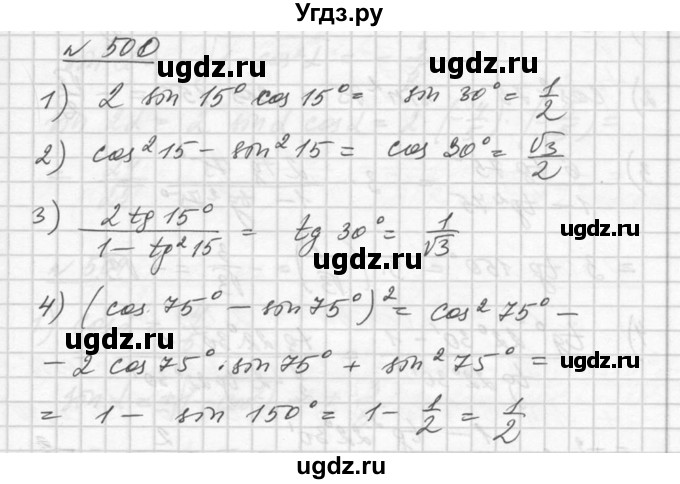 Угдз.ру
№ 500
ugdz.ru ugdz.ru
1) 2 sin 15° cos 15° = sin 30° = 1/2
2) cos² 15 - sin² 15 = cos 30° = √3/2
ugdz.ru
3) 2 tg 15° / 1 - tg² 15 = tg 30° = 1/√3
ugdz.ru
4) (cos 75° - sin 75°)² = cos² 75° -
ugdz.ru
- 2 cos 75° · sin 75° + sin² 75° =
= 1 - sin 150° = 1 - 1/2 = 1/2
ugdz.ru
ugdz.ru